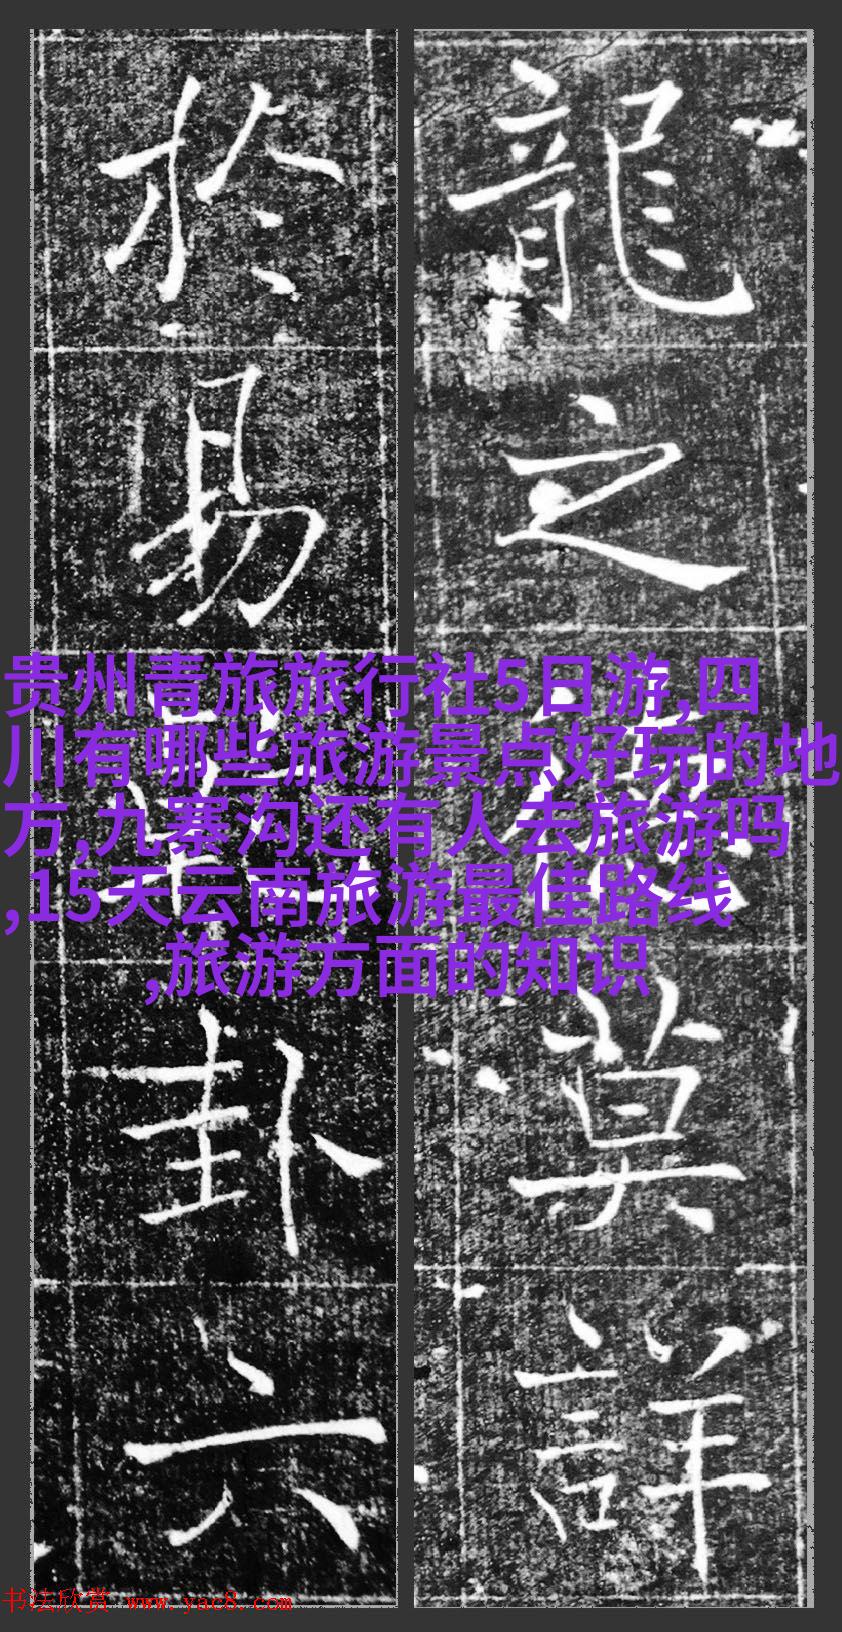 龍之
莫詳
於易
卦六
贵州青旅旅行社5日游,四
川有哪些旅游景点好玩的地
方,九寨沟还有人去旅游吗
,15天云南旅游最佳路线
,旅游方面的知识
书法欣赏 www.yac8.com